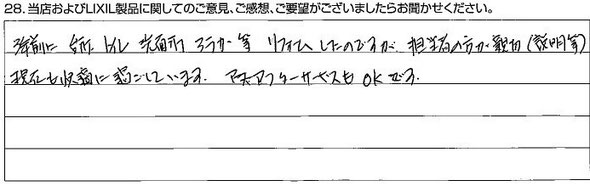 28. 当店およびLIXIL製品に関してのご意見、ご感想、ご要望がございましたらお聞かせください。
数年前に 台所 トイレ 洗面所 ろうか 等 リフォームしたのですが、担当者の方が親切(説明等)
現在も快適に過ごしています。 アフターサービスも OK です。